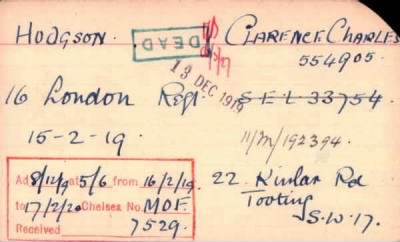 HODGSON. DEAD CLARENCE CHARLES
554905.
13 DEC 1919
16 London Regt. S E L 33754
15-2-19. 11/M/192394.
Ad 8/12/19 at 5/6 from 16/2/19. 22. Rd
to 17/2/20 Chelsea No. MOF. Tooting
Received 7529. S.W.17.